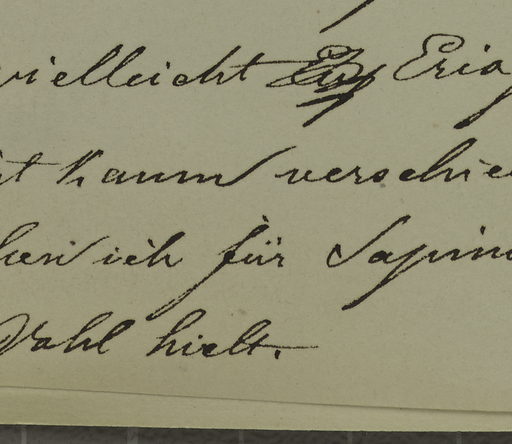 vielleicht Erio
kaum verschie
ich für Sapin
Vahl hielt.